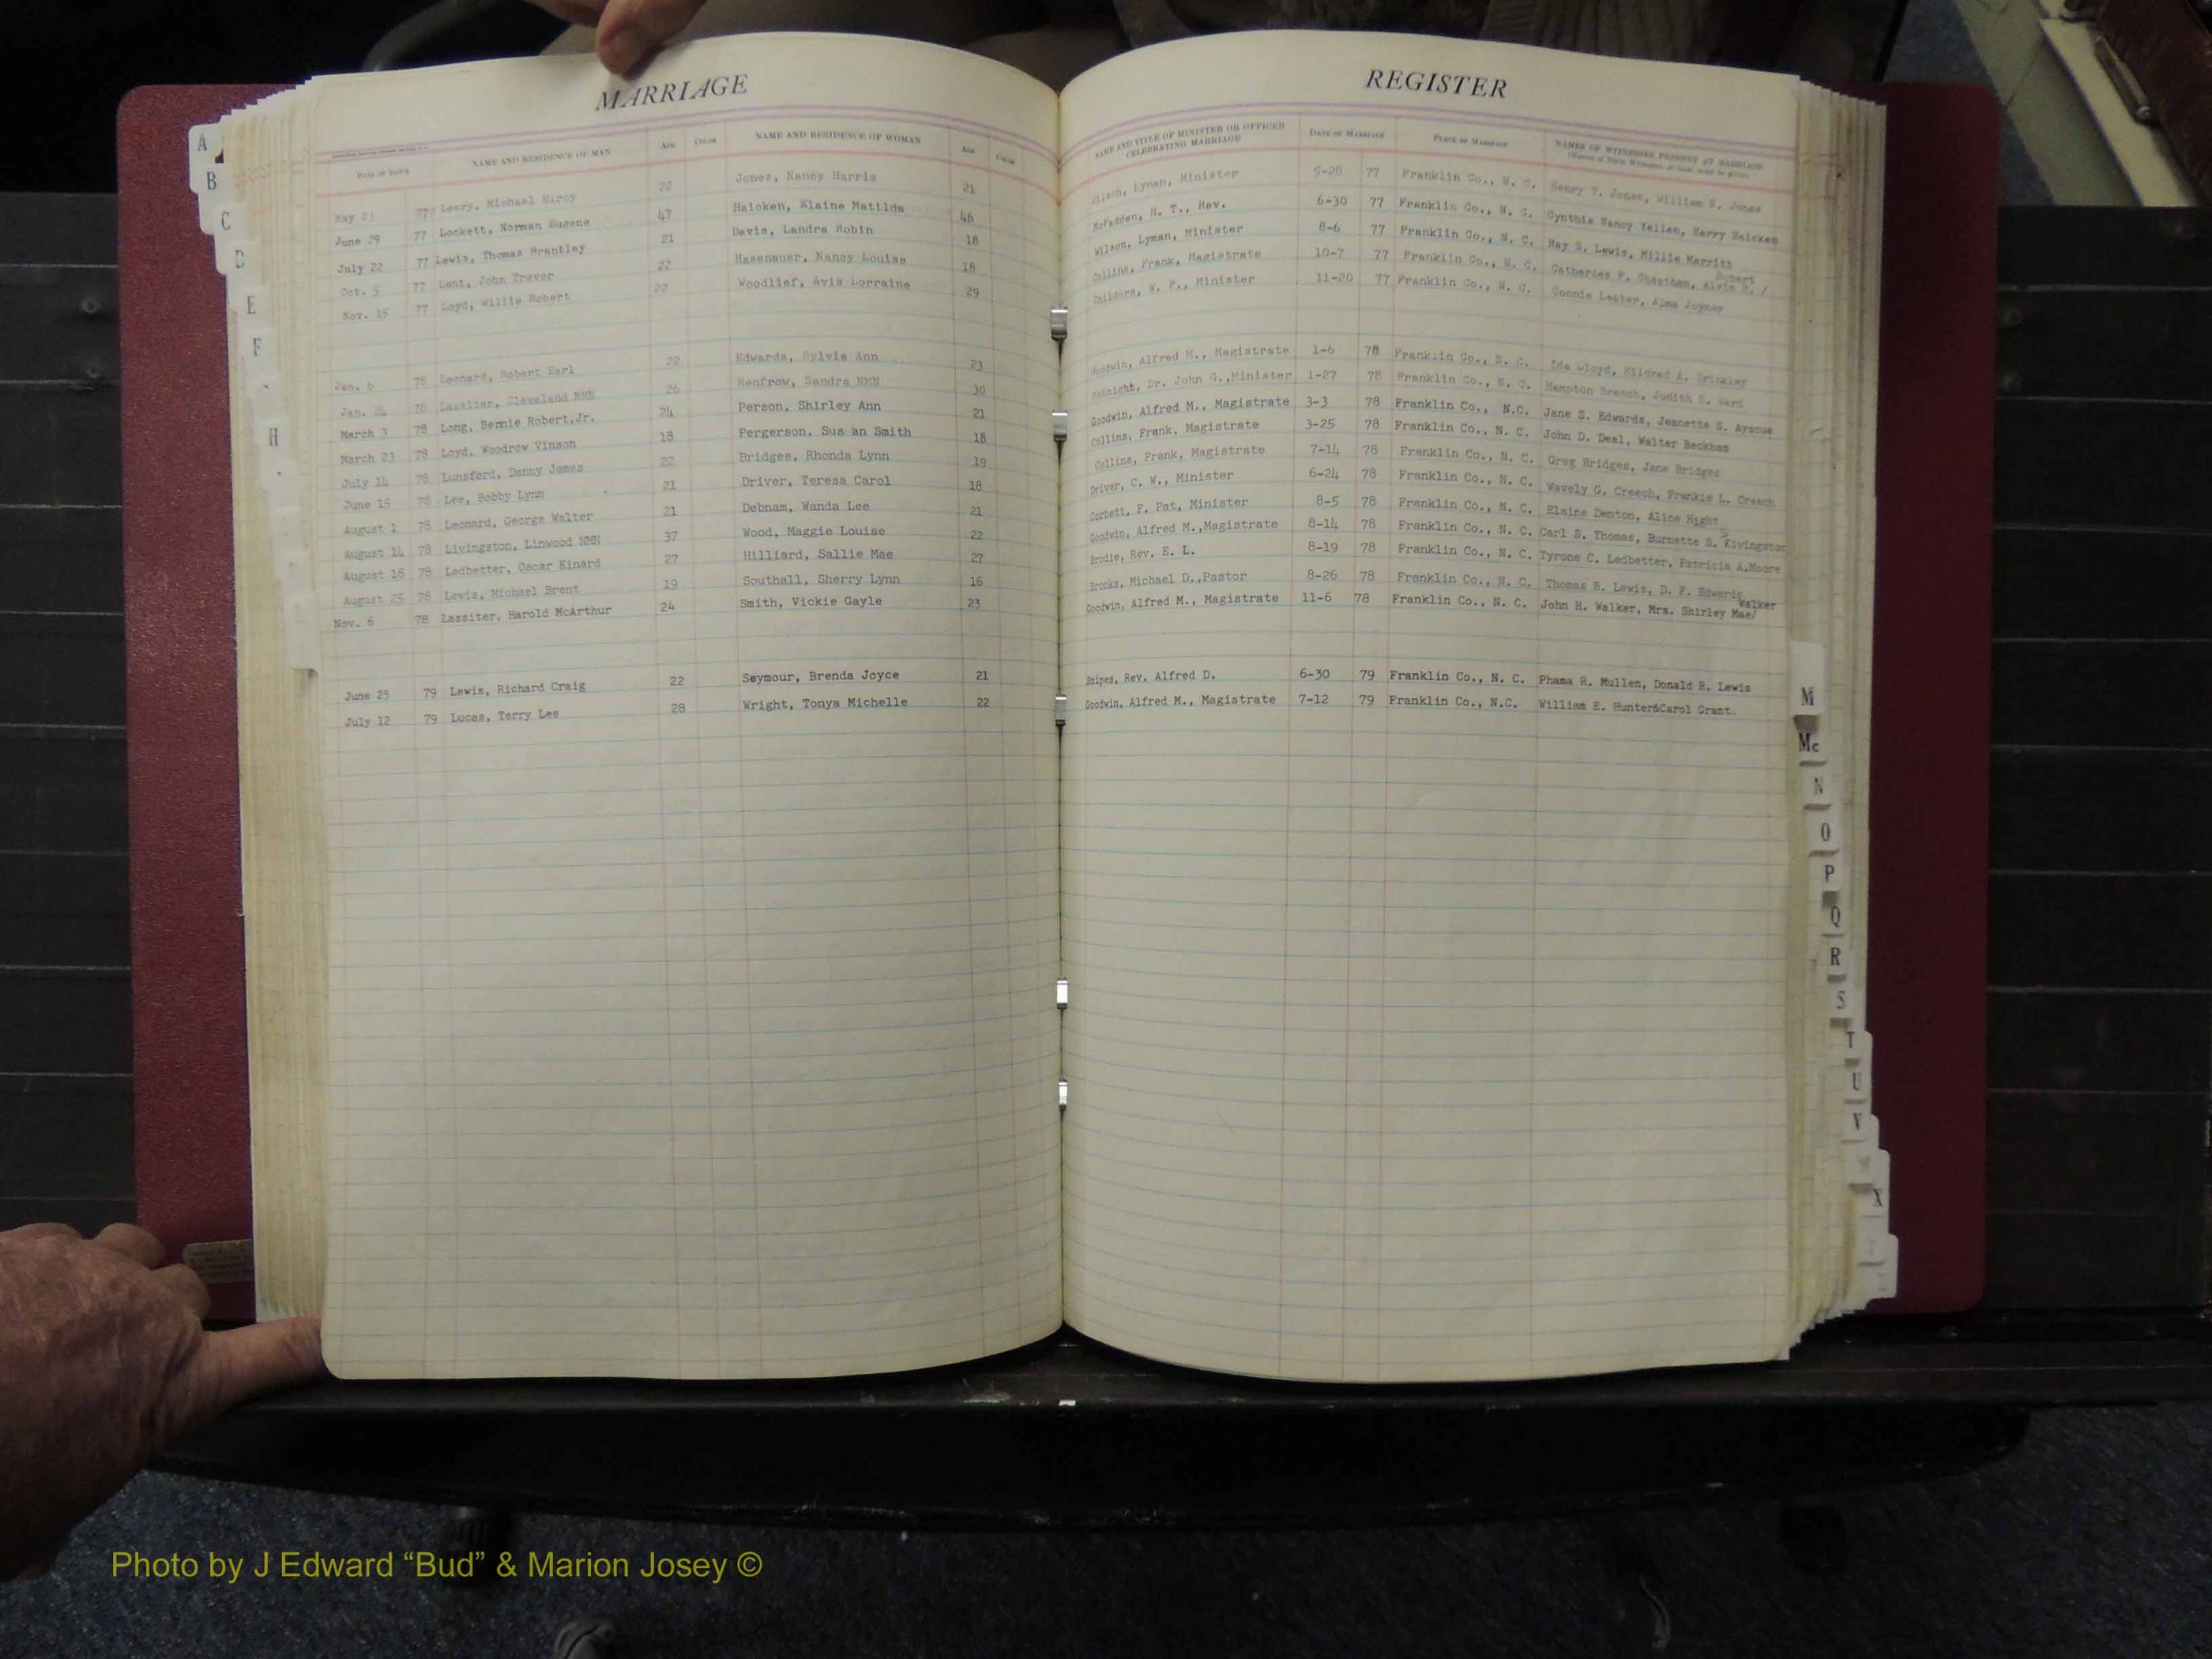 MARRIAGE REGISTER
DATE OF ISSUE NAME AND RESIDENCE OF MAN AGE COLOR NAME AND RESIDENCE OF WOMAN AGE COLOR NAME AND TITLE OF MINISTER OR OFFICER CELEBRATING MARRIAGE DATE OF MARRIAGE PLACE OF MARRIAGE NAMES OF WITNESSES PRESENT AT MARRIAGE
May 77 Leary, Michael 22 Jones, Nancy Harris 21 Wilson, Lyman, Minister 5-28 77 Franklin Co., N. C. Henry S. Jones, William N. Jones
June 29 77 Lockett, Norman Eugene 47 Haicken, Elaine Matilda 46 McFadden, H. T., Rev. 6-30 77 Franklin Co., N. C. Cynthia Nancy Yellen, Harry Haicken
July 22 77 Lewis, Thomas Brantley 21 Davis, Landra Robin 18 Wilson, Lyman, Minister 8-6 77 Franklin Co., N. C. Ray S. Lewis, Millie Merritt
Oct. 5 77 Lent, John Trevor 22 Hasenauer, Nancy Louise 18 Collins, Frank, Magistrate 10-7 77 Franklin Co., N. C. Catherine P. Cheatham, Alvin Robert /
Nov. 15 77 Loyd, Willie Robert 22 Woodlief, Avis Lorraine 29 Childers, W. P., Minister 11-20 77 Franklin Co., N. C. Connie Lester, Alma Joyner
Jan. 6 78 Leonard, Robert Earl 22 Edwards, Sylvia Ann 23 Goodwin, Alfred M., Magistrate 1-6 78 Franklin Co., N. C. Ida Lloyd, Mildred A. Brinkley
Jan. 78 Lassiter, Cleveland NMN 26 Renfrow, Sandra NMN 30 McKnight, Dr. John G.,Minister 1-27 78 Franklin Co., N. C. Hampton Branch, Judith D. Ward
March 3 78 Long, Bernie Robert,Jr. 24 Person, Shirley Ann 21 Goodwin, Alfred M., Magistrate 3-3 78 Franklin Co., N.C. Jane S. Edwards, Jeanette S. Ayscue
March 23 78 Loyd, Woodrow Vinson 18 Pergerson, Sus an Smith 18 Collins, Frank, Magistrate 3-25 78 Franklin Co., N. C. John D. Deal, Walter Beckham
July 14 78 Lunsford, Danny James 22 Bridges, Rhonda Lynn 19 Collins, Frank, Magistrate 7-14 78 Franklin Co., N. C. Greg Bridges, Jane Bridges
June 15 78 Lee, Bobby Lynn 21 Driver, Teresa Carol 18 Driver, C. W., Minister 6-24 78 Franklin Co., N. C. Wavely G. Creech, Frankie L. Creech
August 1 78 Leonard, George Walter 21 Debnam, Wanda Lee 21 Corbett, F. Pat, Minister 8-5 78 Franklin Co., N. C. Elaine Denton, Alice Hight
August 14 78 Livingston, Linwood NMN 37 Wood, Maggie Louise 22 Goodwin, Alfred M.,Magistrate 8-14 78 Franklin Co., N. C. Carl S. Thomas, Burnette S. Kivingston
August 18 78 Ledbetter, Oscar Kinard 27 Hilliard, Sallie Mae 27 Brodie, Rev. E. L. 8-19 78 Franklin Co., N. C. Tyrone C. Ledbetter, Patricia A.Moore
August 25 78 Lewis, Michael Brent 19 Southall, Sherry Lynn 16 Brooks, Michael D.,Pastor 8-26 78 Franklin Co., N. C. Thomas B. Lewis, D. F. Edwards
Nov. 6 78 Lassiter, Harold McArthur 24 Smith, Vickie Gayle 23 Goodwin, Alfred M., Magistrate 11-6 78 Franklin Co., N. C. John H. Walker, Mrs. Shirley Mae/ Walker
June 25 79 Lewis, Richard Craig 22 Seymour, Brenda Joyce 21 Snipes, Rev. Alfred D. 6-30 79 Franklin Co., N. C. Phama R. Mullen, Donald R. Lewis
July 12 79 Lucas, Terry Lee 28 Wright, Tonya Michelle 22 Goodwin, Alfred M., Magistrate 7-12 79 Franklin Co., N.C. William E. Hunter&Carol Grant
A
B
C
D
E
F
H
M
Mc
N
O
P
Q
R
S
T
U
V
W
X
Photo by J Edward “Bud” & Marion Josey ©